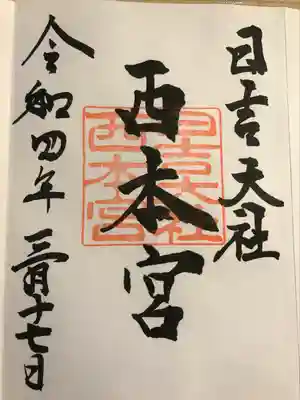 日吉天社
西本宮
令和四年三月十七日
日吉大社
西本宮